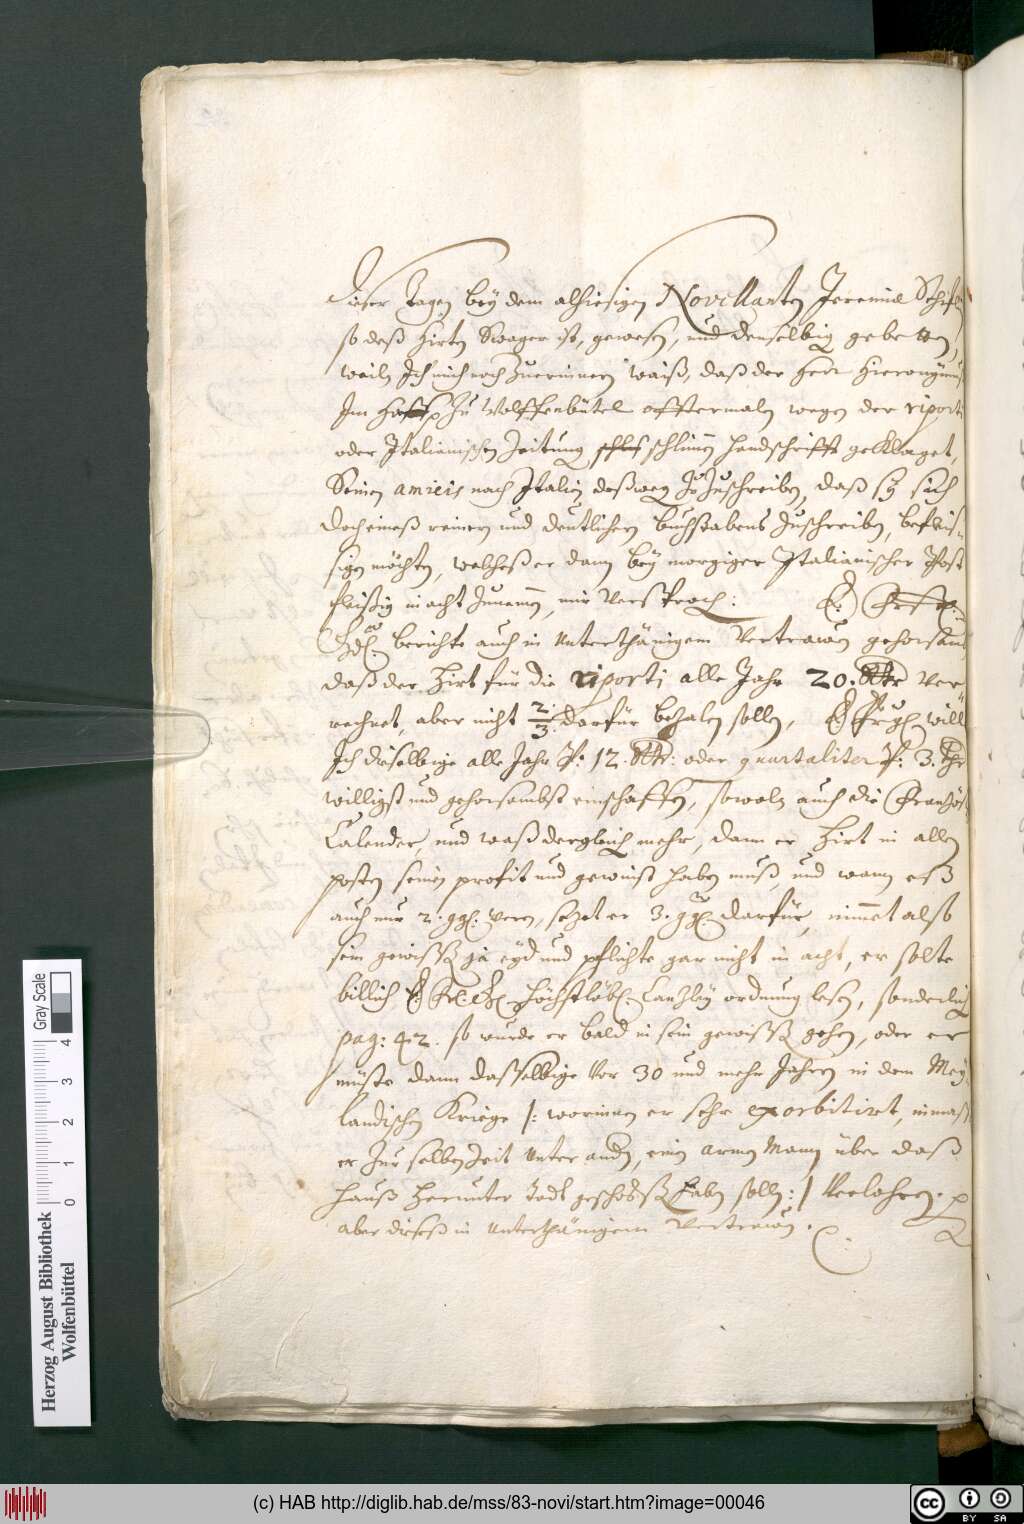 Dieser Tagen bey dem alhiesigen Novellanten Jeremia Schiflin
so deß Hirten Swager ist, gewesen, und denselbig gebetten,
weiln Ich mich noch Zuerinnern waiß, daß der Herr Hieronymus
Im Hoff Zu Wolffenbütel offtermalen wegen der riporti
oder Italianischen Zeitung schlimmen handschrifft geklaget,
Seinen amicis nach Italien deßweg Zu Zuschreiben, daß sy sich
doch eines reinen und deutlichen buchstabens Zuschreiben, befleis-
sigen möchten, welches er dann bey morgiger Italianischer Post
fleißig in acht Zunemen, mir Versproch:
berichte auch in Unterthänigem Vertrawen gehorsamb
daß der Hirt für die riporti alle Jahr 20. Thlr Ver-
rechnet, aber nicht 2/3 darfür bezalen sollen, will
Ich dieselbige alle Jahr P: 12. Thlr: oder quartaliter P: 3. Thlr
willigst und gehorsambst einschaffen, sowoln auch die Französ:
Calender, und waß dergleich mehr, dann er Hirt in allen
posten seinen profit und gewinst haben muß, und wann eß
auch nur 2. ggl. weren, sezet er 3. ggl. darfür, nimmet also
sein gewissen ja eyd und pflichte gar nicht in acht, er solte
billich höchstlöbl. Canzley ordnung lesen, sonderlich
pag: 42. so wurde er bald in sein gewissen gehen, oder er
müste dann dasselbige Vor 30 und mehr Jahren in dem Mey-
landischen Kriege /: worinnen er sehr exorbitiret, inmaß
er Zur selben Zeit Unter andern, einen armen Mann über daß
Hauß herunter Todt geschossen haben sollen :/ Verlohren.
aber dieses in Unterthänigem Vertrawen.
Gray Scale
0 1 2 3 4
Herzog August Bibliothek
Wolfenbüttel
(c) HAB http://diglib.hab.de/mss/83-novi/start.htm?image=00046
CC BY SA